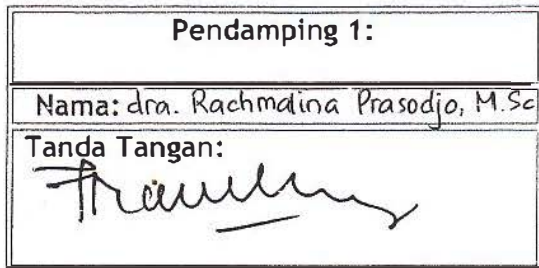 Pendamping 1:
Nama: dra. Rachmalina Prasodjo, M.Sc
Tanda Tangan: